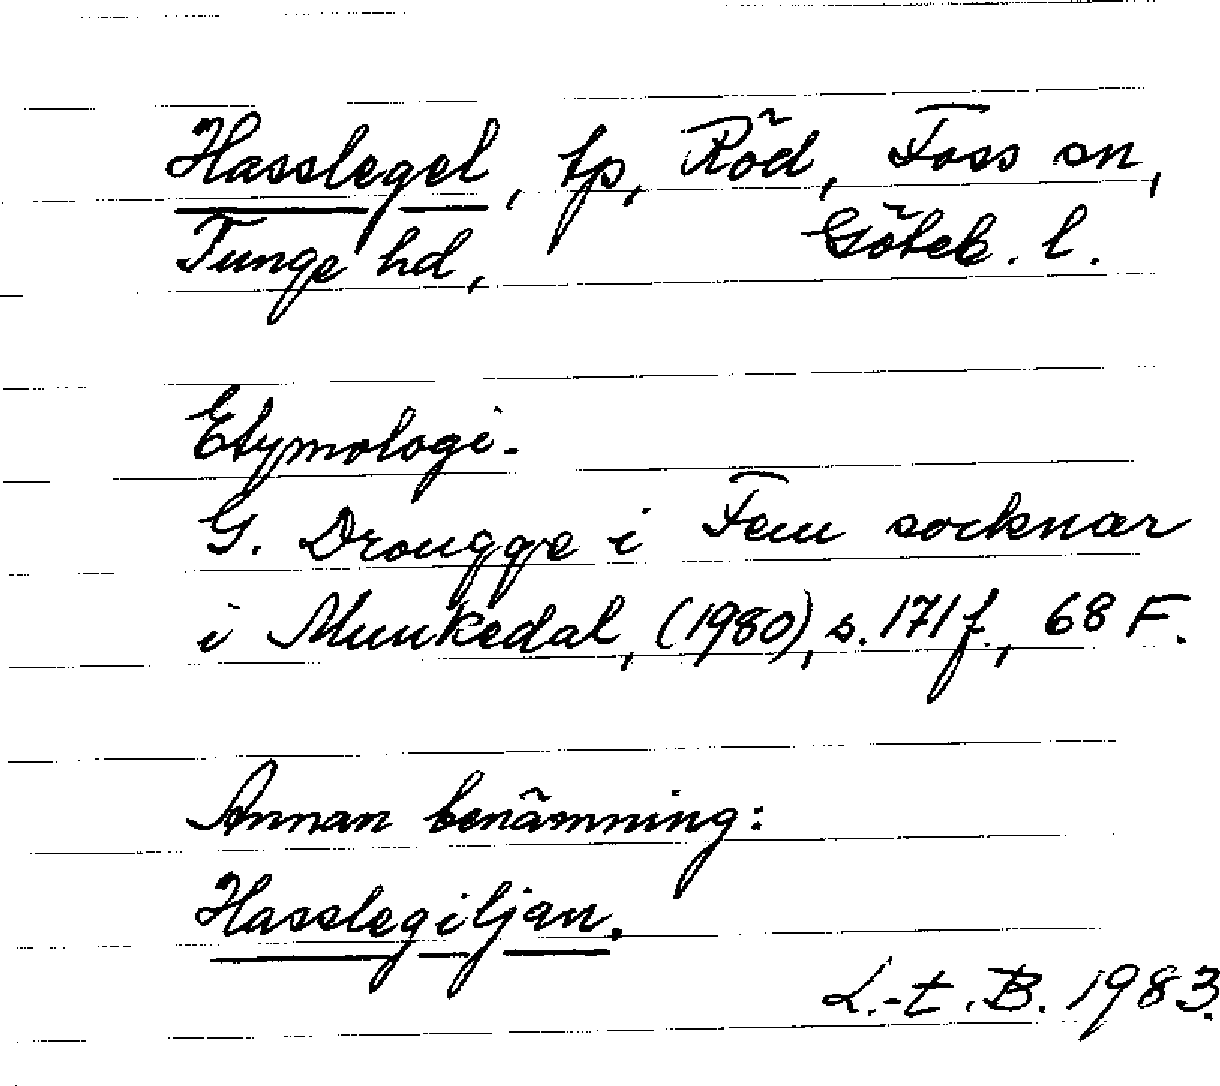 Hasslegel, tp, Röd, Foss sn,
Tunge hd, Göteb. l.
Etymologi.
G. Drougge i Fem socknar
i Munkedal, (1980), s. 171 f., 68 F.
Annan benämning:
Hasslegiljan.
L.-t. B. 1983.